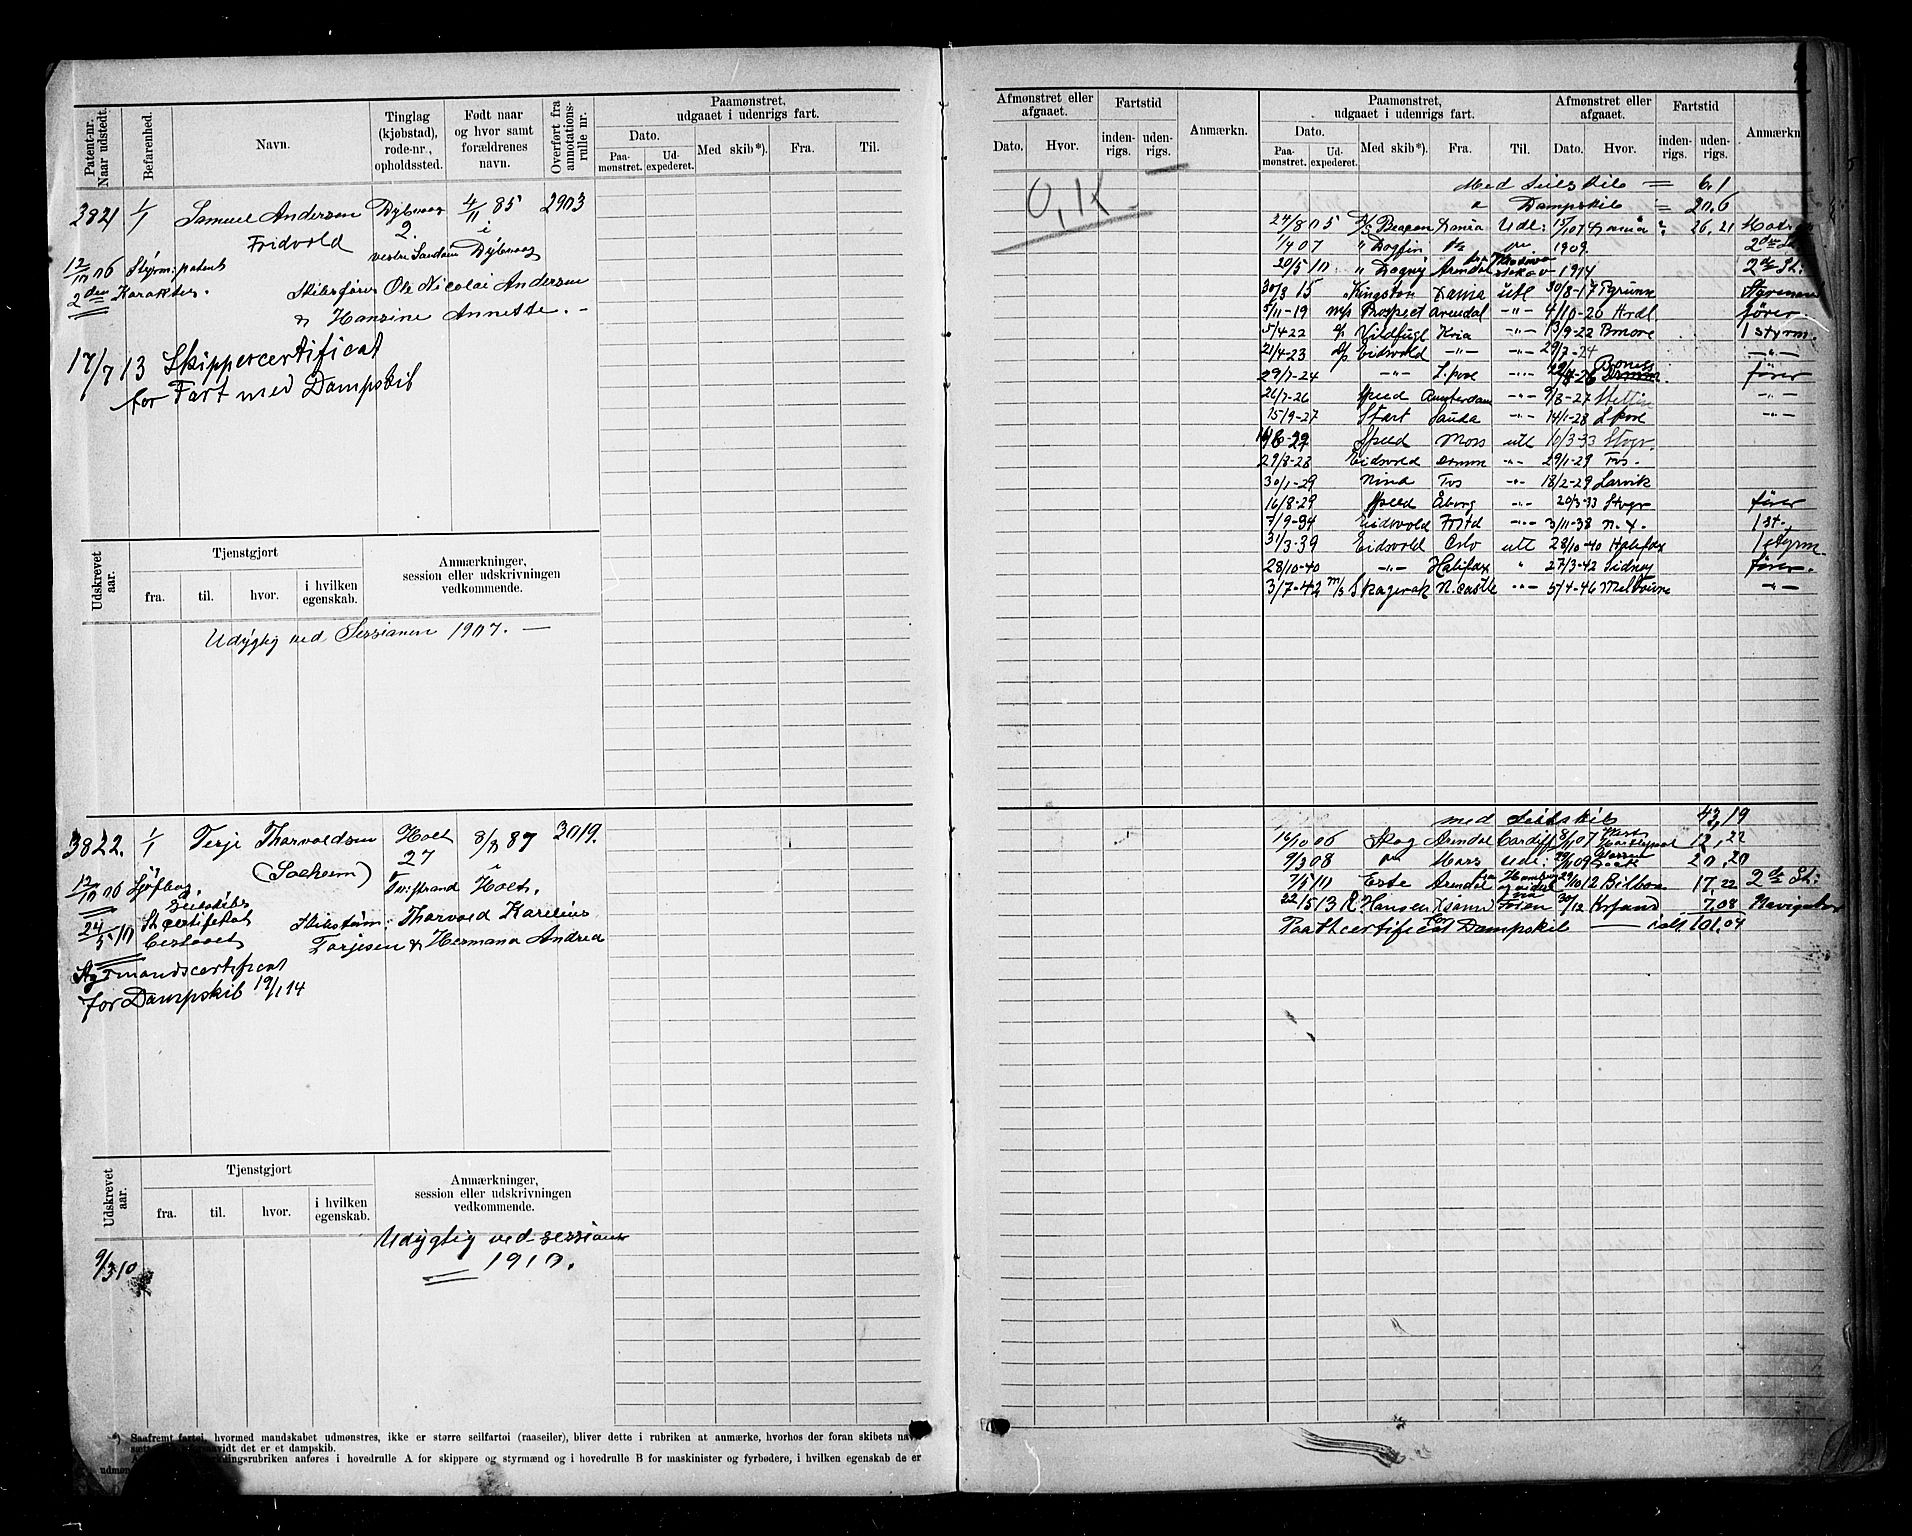 Patent-nr. Naar udstedt.
Befarenhed.
Navn.
Tinglag (kjøbstad), rode-nr., opholdssted.
Født naar og hvor samt forældrenes navn.
Overført fra annotationsrulle nr.
Paamønstret, udgaaet i udenrigs fart.
Dato.
Paamønstret.
Udexpederet.
Med skib*).
Fra.
Til.
3821 1/1 Samuel Anderson Dybvaag 4/11 85 2903
Fridvold 2. i
vestre Sandøen Dybvaag
12/11 06 Styrm: patent
2den Karakter. Skibsfører Ole Nicolai Anderson
& Hansine Annette. -
17/7 13 Skippercertificat
for Fart med Dampskib
Udskrevet aar.
Tjenstgjort
fra. til. hvor. i hvilken egenskab.
Anmærkninger, session eller udskrivningen vedkommende.
Udygtig ved Sessionen 1907. —
3822. 1/1 Terje Thorvaldsen Holt 87 3019.
(Solheim) 27 i
Tvedestrand Holt.
Seilskibs
St. certifikat Skibstøm: Thorvald Karelius
Terjesen & Hermana Andrea
Styrmandscertificat
for Dampskib 19/1 14
Udskrevet aar.
Tjenstgjort
fra. til. hvor. i hvilken egenskab.
Anmærkninger, session eller udskrivningen vedkommende.
9/3 10 Udygtig ved sessionen
1910.
Saafremt fartøi, hvormed mandskabet udmønstres, ikke er større seilfartøi (raaseiler), bliver dette i rubriken at anmærke, hvorhos der foran skibets navn
det er et dampskib.
anføres i hovedrulle A for skippere og styrmænd og i hovedrulle B for maskinister og fyrbødere, i hvilken egenskab de er
Afmønstret eller afgaaet.
Dato. Hvor.
Fartstid
indenrigs. udenrigs.
Anmærkn.
Paamønstret, udgaaet i udenrigs fart.
Dato.
Paamønstret. Udexpederet.
Med skib*). Fra. Til.
Afmønstret eller afgaaet.
Dato. Hvor.
Fartstid
indenrigs. udenrigs.
Anmærkn.
O.K.
Med Seilskib = 6,1
" Dampskib = 20,6
24/8 05 Beacon Udl: 26,21 Matros
1/4 07 " Dogfin 1909. 2den St.
20/5 10 " Dagny Arendal 1914 2den St.
30/8 15 Kingston utl 30/8-17 Styrmand
5/11-19 m/s Prospect Arendal -"- 4/10-20 Ardl fører
5/4 22 Vildfugl Kria -"- 13/9-22 Bmore 1 styrm.
21/4-23 d/s Eidsvold -"- -"- 29/7-24 -"-
29/7-24 -"- L.pool -"- fører
26/7-26 Speed Amsterdam -"- 9/8-27 Stettin -"-
15/9-27 Start Sauda -"- 14/1-28 L.pool -"-
Speed Moss utl 10/3-33
29/8-28 Eidsvold Dramn -"- 29/1-29 Tvs.
30/1-29 Nina Tvs -"- 18/2-29 Larvik
16/8-29 Speed Åborg -"- 20/3-33 fører
7/9-34 Eidsvold Frstd -"- 3/11-38 N.Y. 1 st.
31/3-39 Eidsvold Oslo utl 28/10-40 Halifax 1 styrm.
28/10-40 -"- Halifax " 27/3-42 Sidney fører.
3/7-42 m/s Skagerak N.castle -"- 5/4-46 Melbourne -"-
med Seilskib 43,19
14/10 06 Skog Arendal Cardiff 8/1 07 12,22
9/3 08 Mars Udl: 20,20
7/5 10 Este Arendal 29/10 12 Bilbao 17,22 2den St:
22/5 13 R. Hansen 7,08 Navigatør
Baathcertificat for Dampskib — ialt 101,04